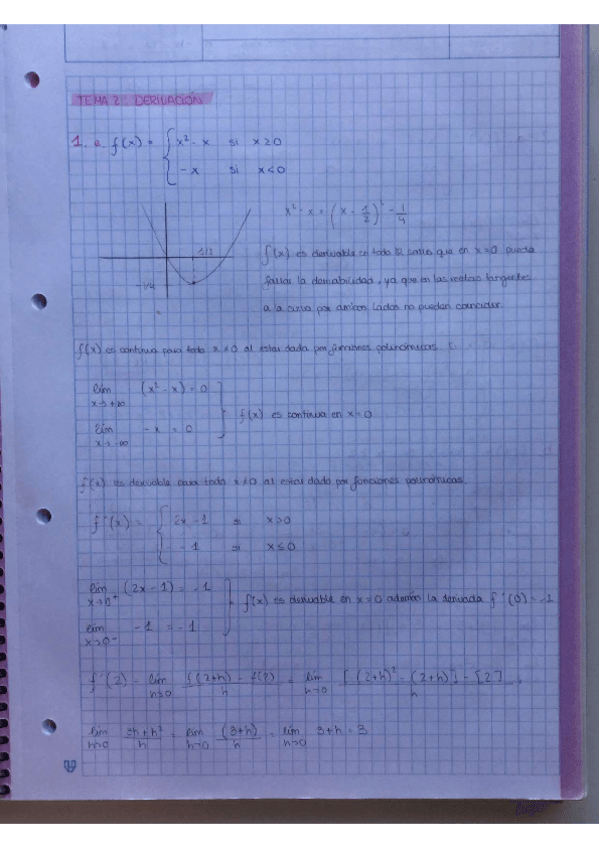 TEMA 2: DERIVACIÓN
1. a f(x) = { x² - x si x ≥ 0
- x si x < 0
x² - x = (x - 1/2)² - 1/4
1/2
-1/4
f(x) es derivable en todo ℝ salvo que en x=0 pueda
fallar la derivabilidad, ya que en las rectas tangentes
a la curva por ambos lados no pueden coincidir.
f(x) es continua para todo x ≠ 0 al estar dada por funciones polinómicas.
lím x→+∞ (x² - x) = 0
lím x→-∞ -x = 0 } f(x) es continua en x=0
f(x) es derivable para todo x ≠ 0 al estar dado por funciones polinómicas.
f'(x) = { 2x - 1 si x>0
- 1 si x≤0
lím x→0⁺ (2x - 1) = -1
lím x→0⁻ -1 = -1 } f(x) es derivable en x=0 además la derivada f'(0) = -1
f'(2) = lím h→0 f(2+h) - f(2) / h = lím h→0 [(2+h)² - (2+h)] - [2] / h =
lím h→0 3h + h² / h = lím h→0 (3+h) / h = lím h→0 3+h = 3